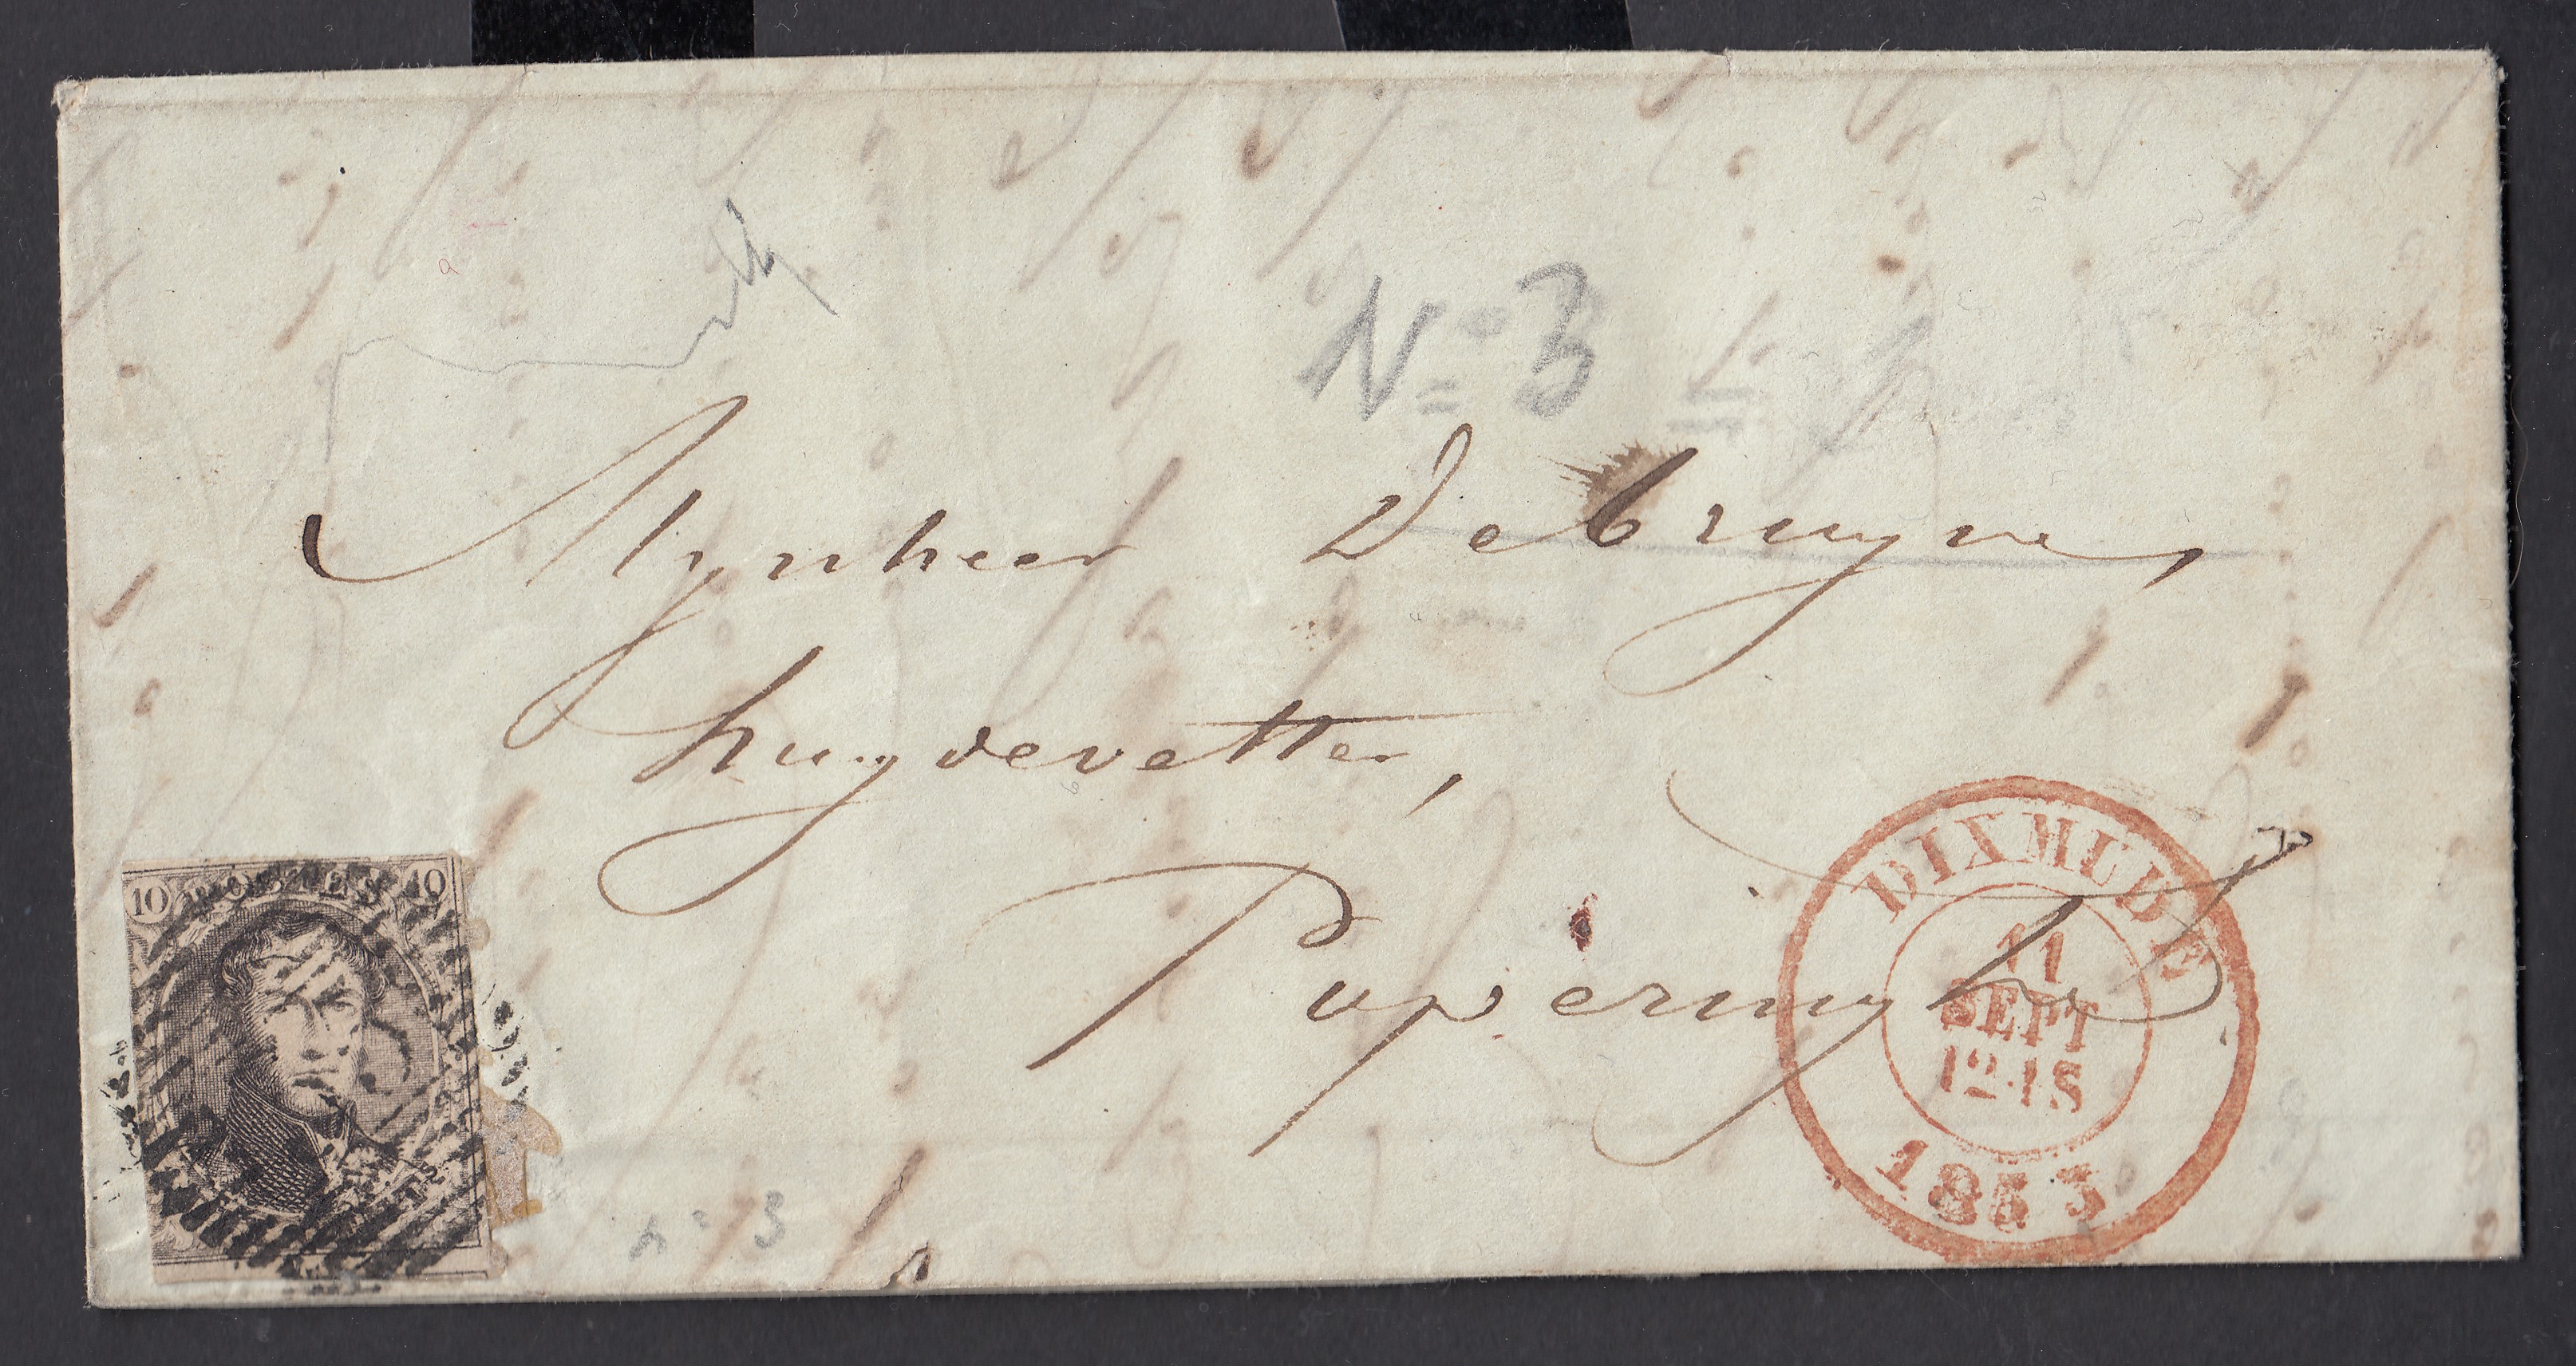 N° 3
Mynheer Debruyne,
huydevetter,
Poperinghe
10 POSTES 10
DIXMUDE
11
SEPT
12-1S
1853
n° 3